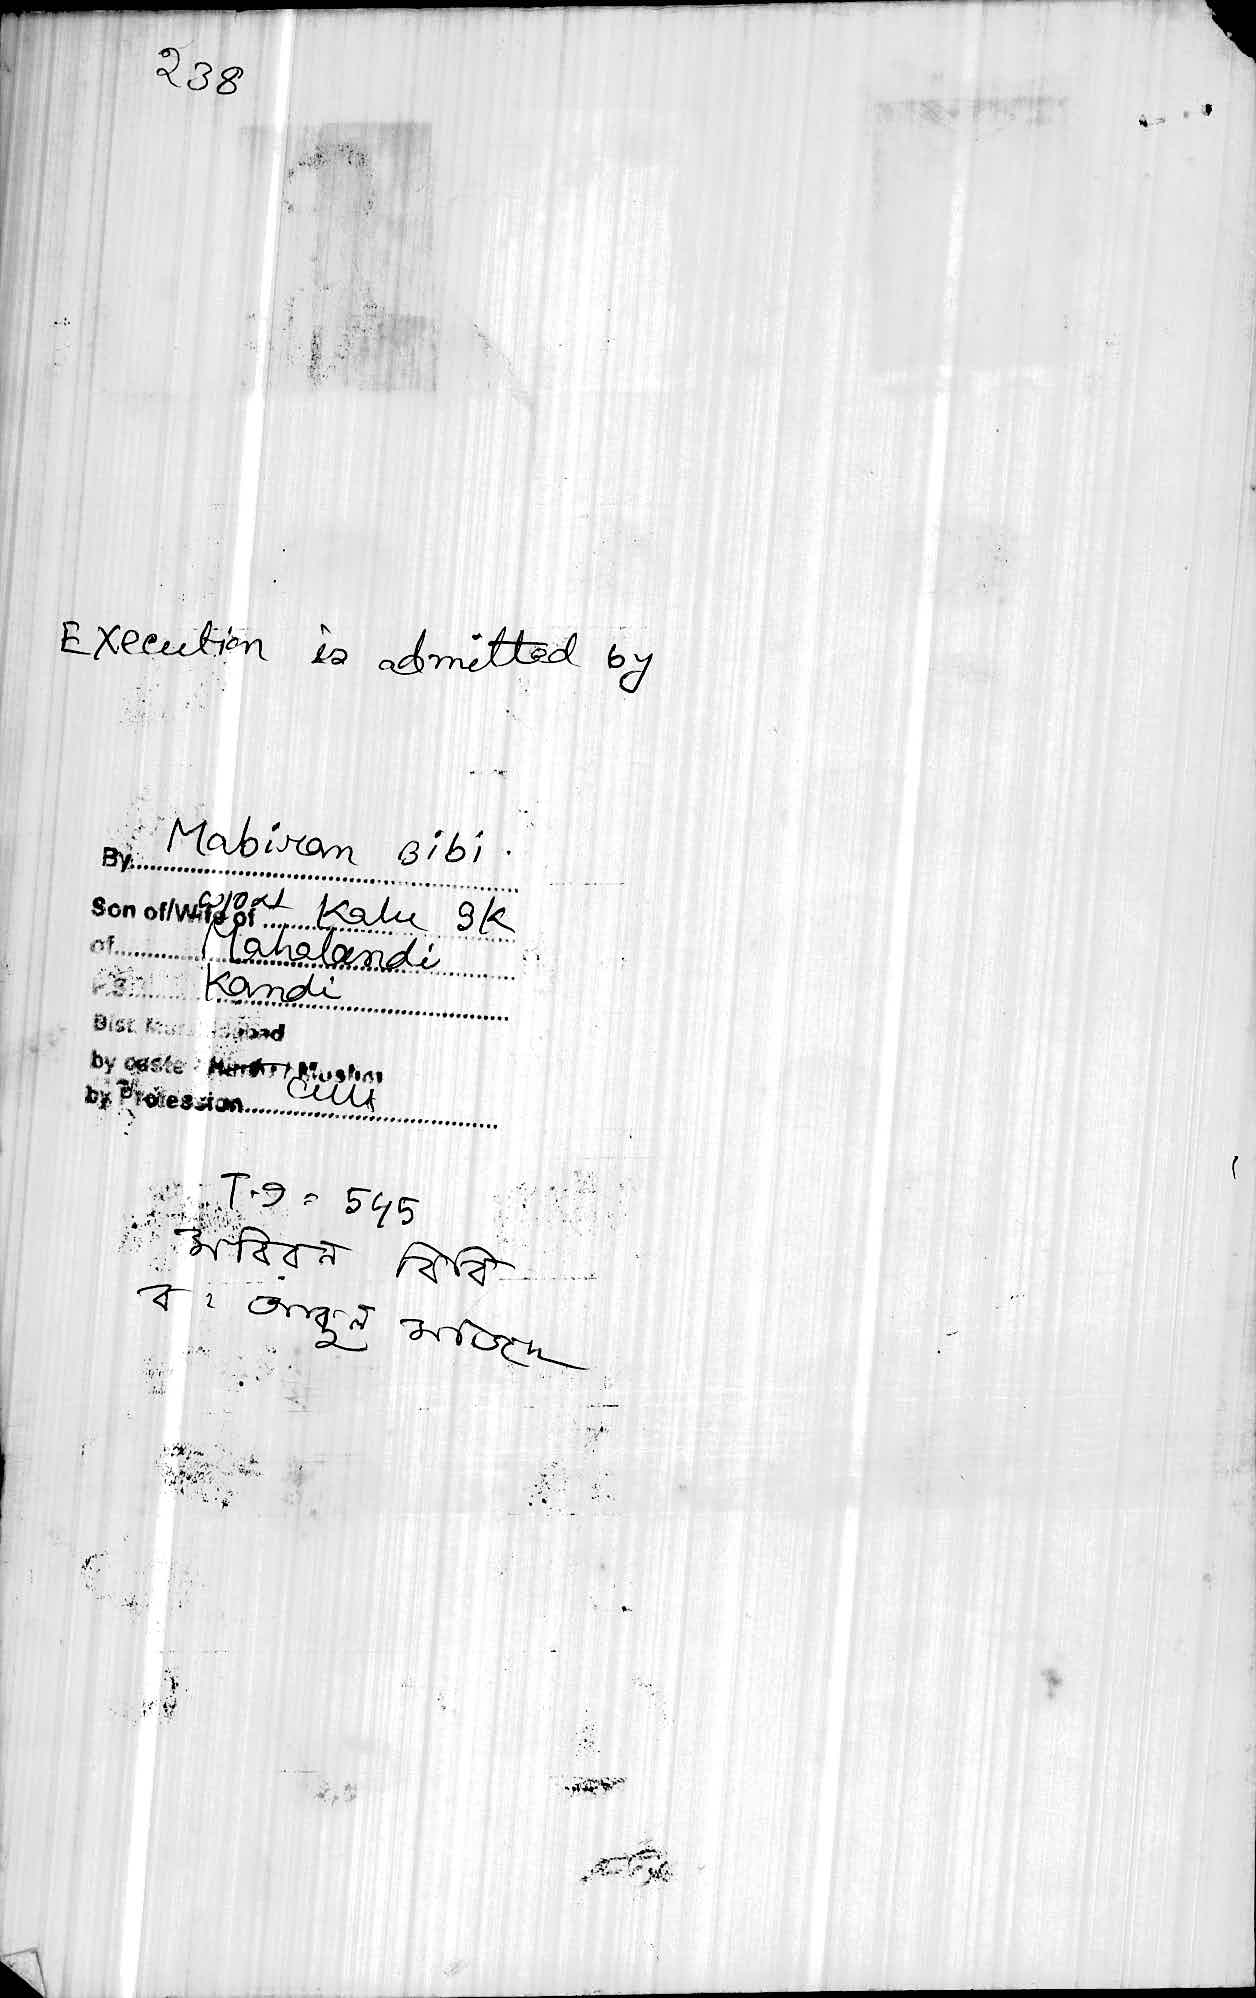 238
Execution is admitted by
By Mabiran Bibi.
Son of/Wife of Kalu SK
of Mahalandi
P.S. Kandi
Dist. Murshidabad
by caste Hindu / Muslim
by Profession
T.9 = 545
মাবিরন বিবি
ব: আব্দুল মাজেদ